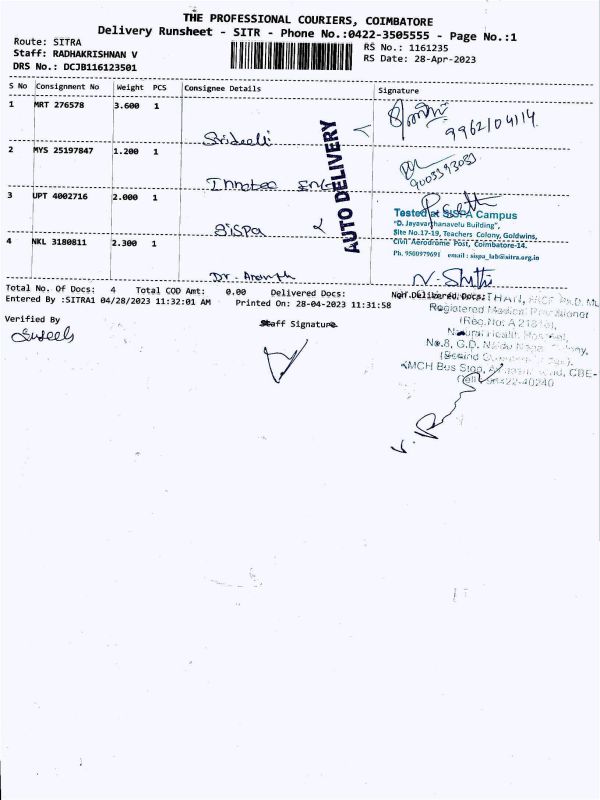 THE PROFESSIONAL COURIERS, COIMBATORE
Delivery Runsheet - SITR - Phone No.:0422-3505555 - Page No.:1
Route: SITRA
Staff: RADHAKRISHNAN V
DRS No.: DCJB116123501
RS No.: 1161235
RS Date: 28-Apr-2023
S No Consignment No Weight PCS Consignee Details Signature
1 MRT 276578 3.600 1
9962104114
2 MYS 25197847 1.200 1
9003393083
AUTO DELIVERY
3 UPT 4002716 2.000 1 SISPA
Tested at SISPA Campus
"D. Jayavarthanavelu Building",
Site No.17-19, Teachers Colony, Goldwins,
Civil Aerodrome Post, Coimbatore-14.
Ph. 9500979691 email: sispa_lab@sitra.org.in
4 NKL 3180811 2.300 1 Dr.
Total No. Of Docs: 4 Total COD Amt: 0.00 Delivered Docs: Not Delivered Docs:
Entered By :SITRA1 04/28/2023 11:32:01 AM Printed On: 28-04-2023 11:31:58
Verified By Staff Signature
Registered Medical Practitioner
(Reg.No: A
Natural Health Hospital,
No.8, G.D. Naidu
MCH Bus Stop, CBE-